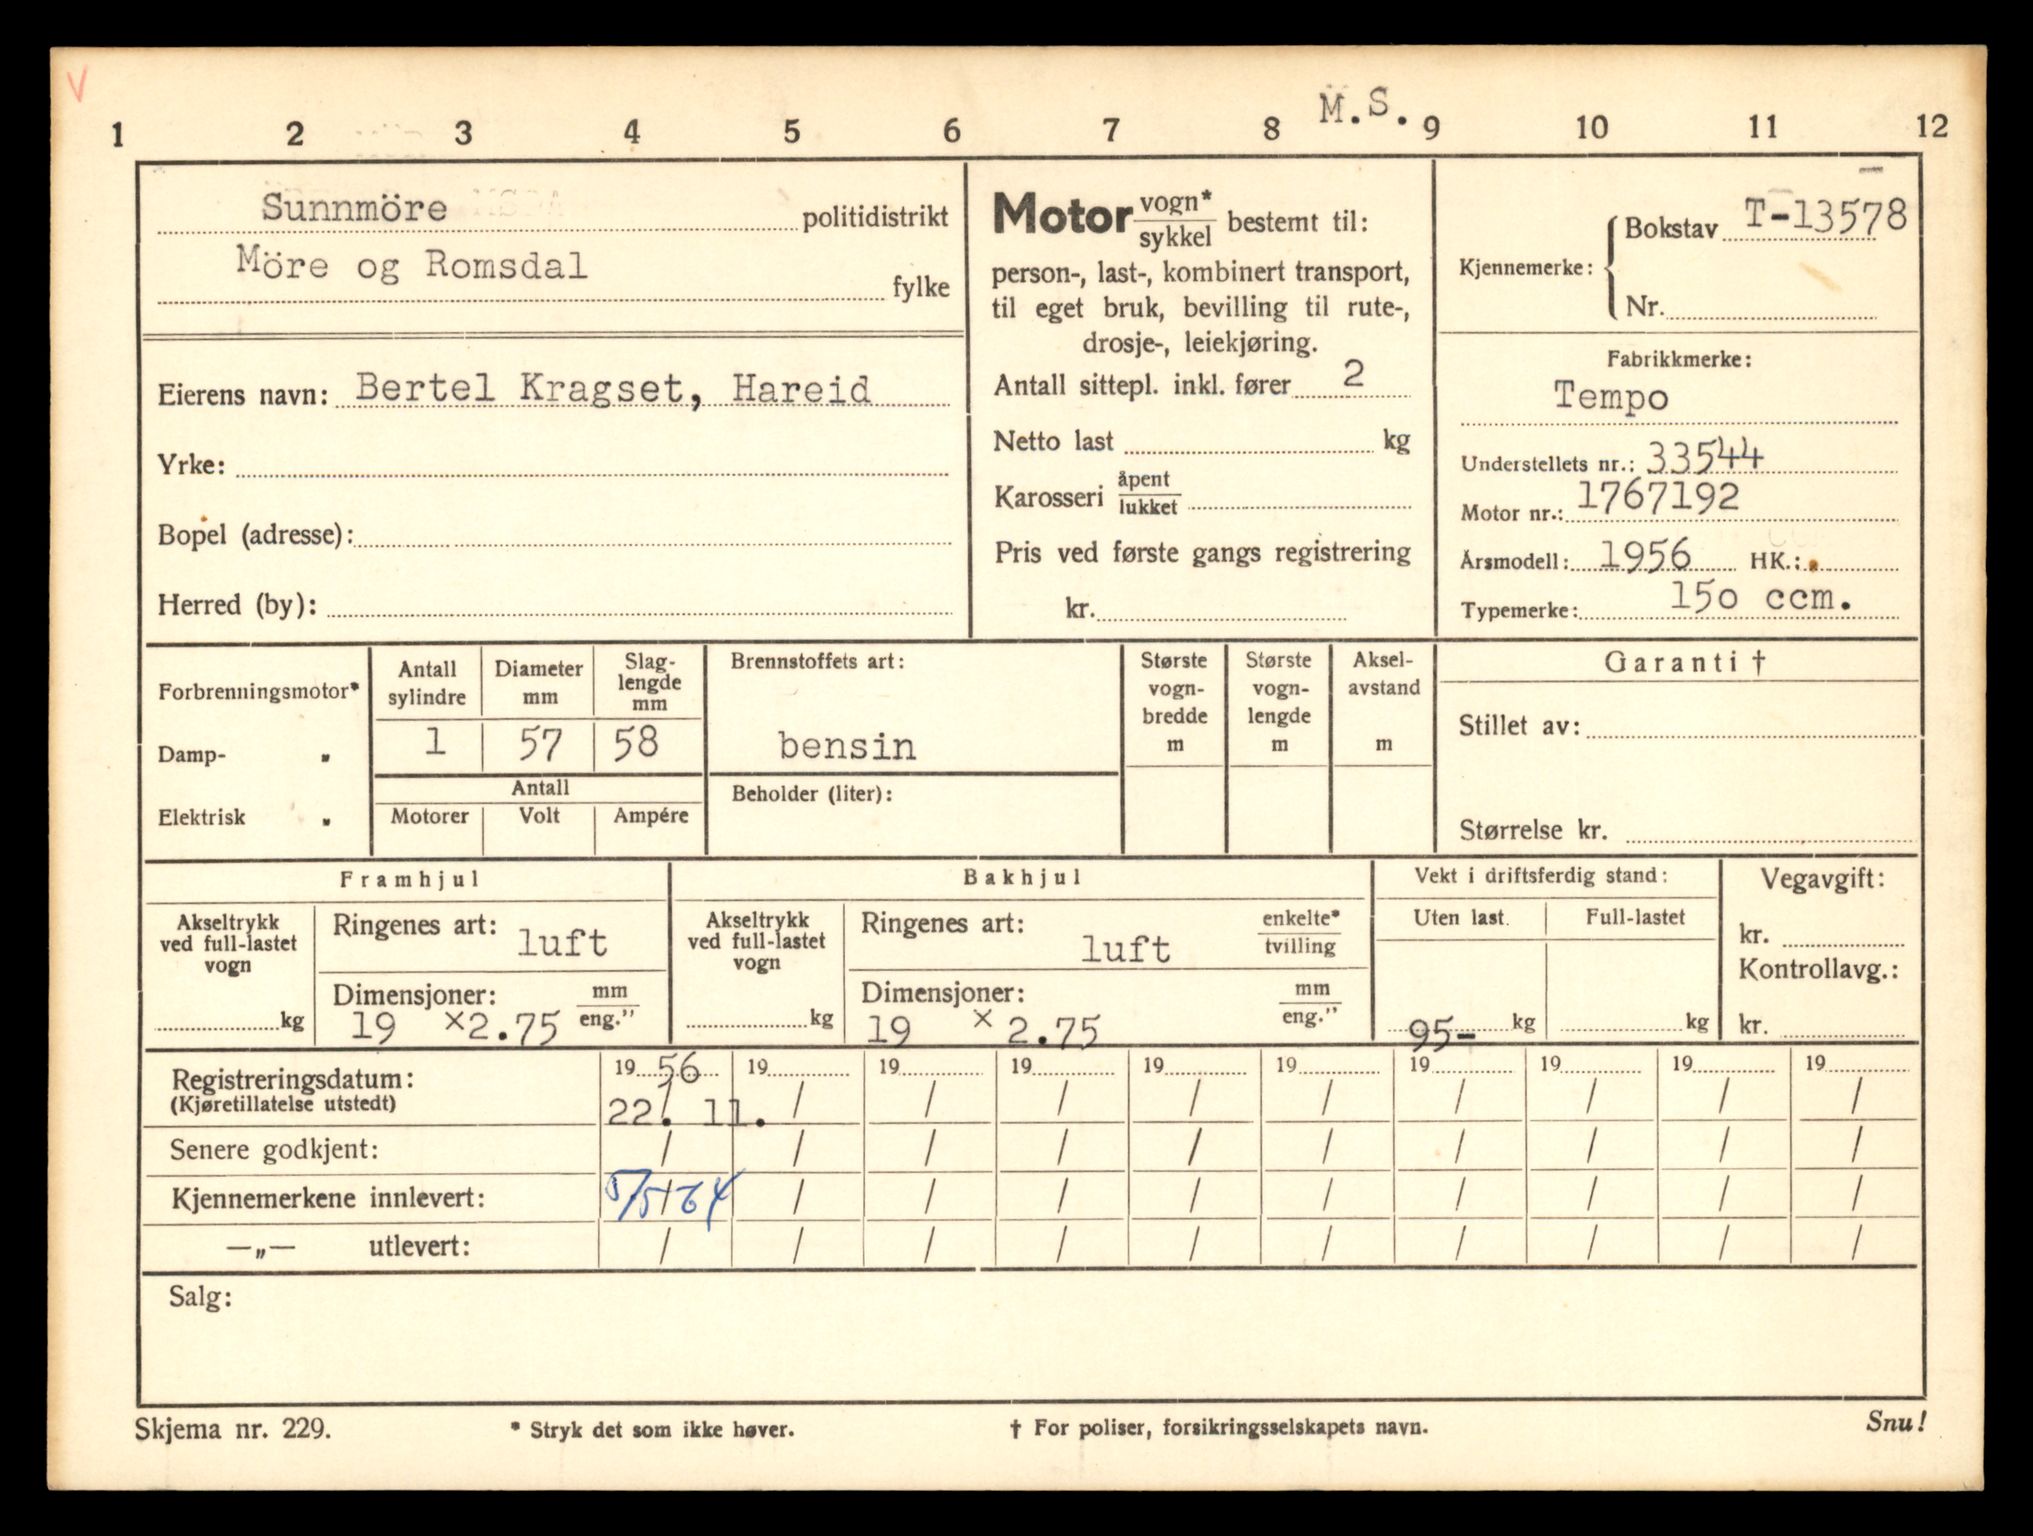 V
M.S.
1 2 3 4 5 6 7 8 9 10 11 12
Sunnmöre politidistrikt
Möre og Romsdal fylke
Eierens navn: Bertel Kragset, Hareid
Yrke:
Bopel (adresse):
Herred (by):
Motor vogn* sykkel bestemt til:
person-, last-, kombinert transport,
til eget bruk, bevilling til rute-,
drosje-, leiekjøring.
Antall sittepl. inkl. fører 2
Netto last kg
Karosseri åpent lukket
Pris ved første gangs registrering
kr.
Kjennemerke: Bokstav T-13578
Nr.
Fabrikkmerke:
Tempo
Understellets nr.: 33544
Motor nr.: 1767192
Årsmodell: 1956 HK.:
Typemerke: 150 ccm.
Forbrenningsmotor*
Damp- "
Elektrisk "
Antall sylindre
Diameter mm
Slag-lengde mm
1 57 58
Antall
Motorer Volt Ampére
Brennstoffets art:
bensin
Beholder (liter):
Største vogn-bredde m
Største vogn-lengde m
Aksel-avstand m
Garanti †
Stillet av:
Størrelse kr.
Framhjul
Akseltrykk ved full-lastet vogn
kg
Ringenes art: luft
Dimensjoner: mm eng."
19 x2.75
Bakhjul
Akseltrykk ved full-lastet vogn
kg
Ringenes art: luft enkelte* tvilling
Dimensjoner: mm eng."
19 x 2.75
Vekt i driftsferdig stand:
Uten last. Full-lastet
95- kg kg
Vegavgift:
kr.
Kontrollavg.:
kr.
Registreringsdatum: 19 56 19 19 19 19 19 19 19 19 19
(Kjøretillatelse utstedt) 22. / 11. / / / / / / / / /
Senere godkjent: / / / / / / / / / /
Kjennemerkene innlevert: 5/5 / 64 / / / / / / / / /
—„— utlevert: / / / / / / / / / /
Salg:
Skjema nr. 229. * Stryk det som ikke høver. † For poliser, forsikringsselskapets navn. Snu!